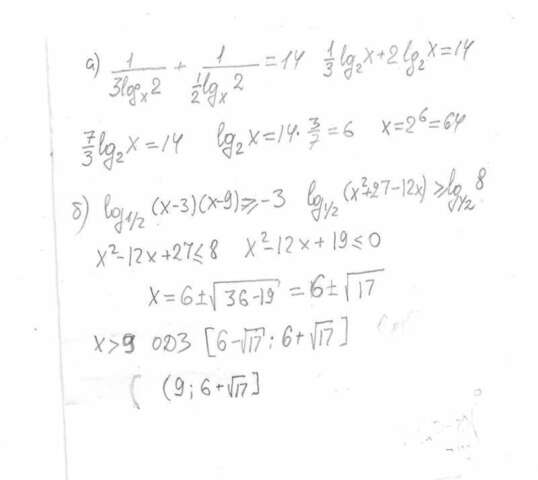 а) 1/(3log_x 2) + 1/(1/2 log_x 2) = 14 1/3 log₂x + 2log₂x = 14
7/3 log₂x = 14 log₂x = 14 · 3/7 = 6 x = 2⁶ = 64
б) log_{1/2} (x-3)(x-9) ≥ -3 log_{1/2} (x²+27-12x) ≥ log_{1/2} 8
x²-12x+27 ≤ 8 x²-12x+19 ≤ 0
x = 6±√(36-19) = 6±√17
x>9 ОДЗ [6-√17; 6+√17]
(9; 6+√17]